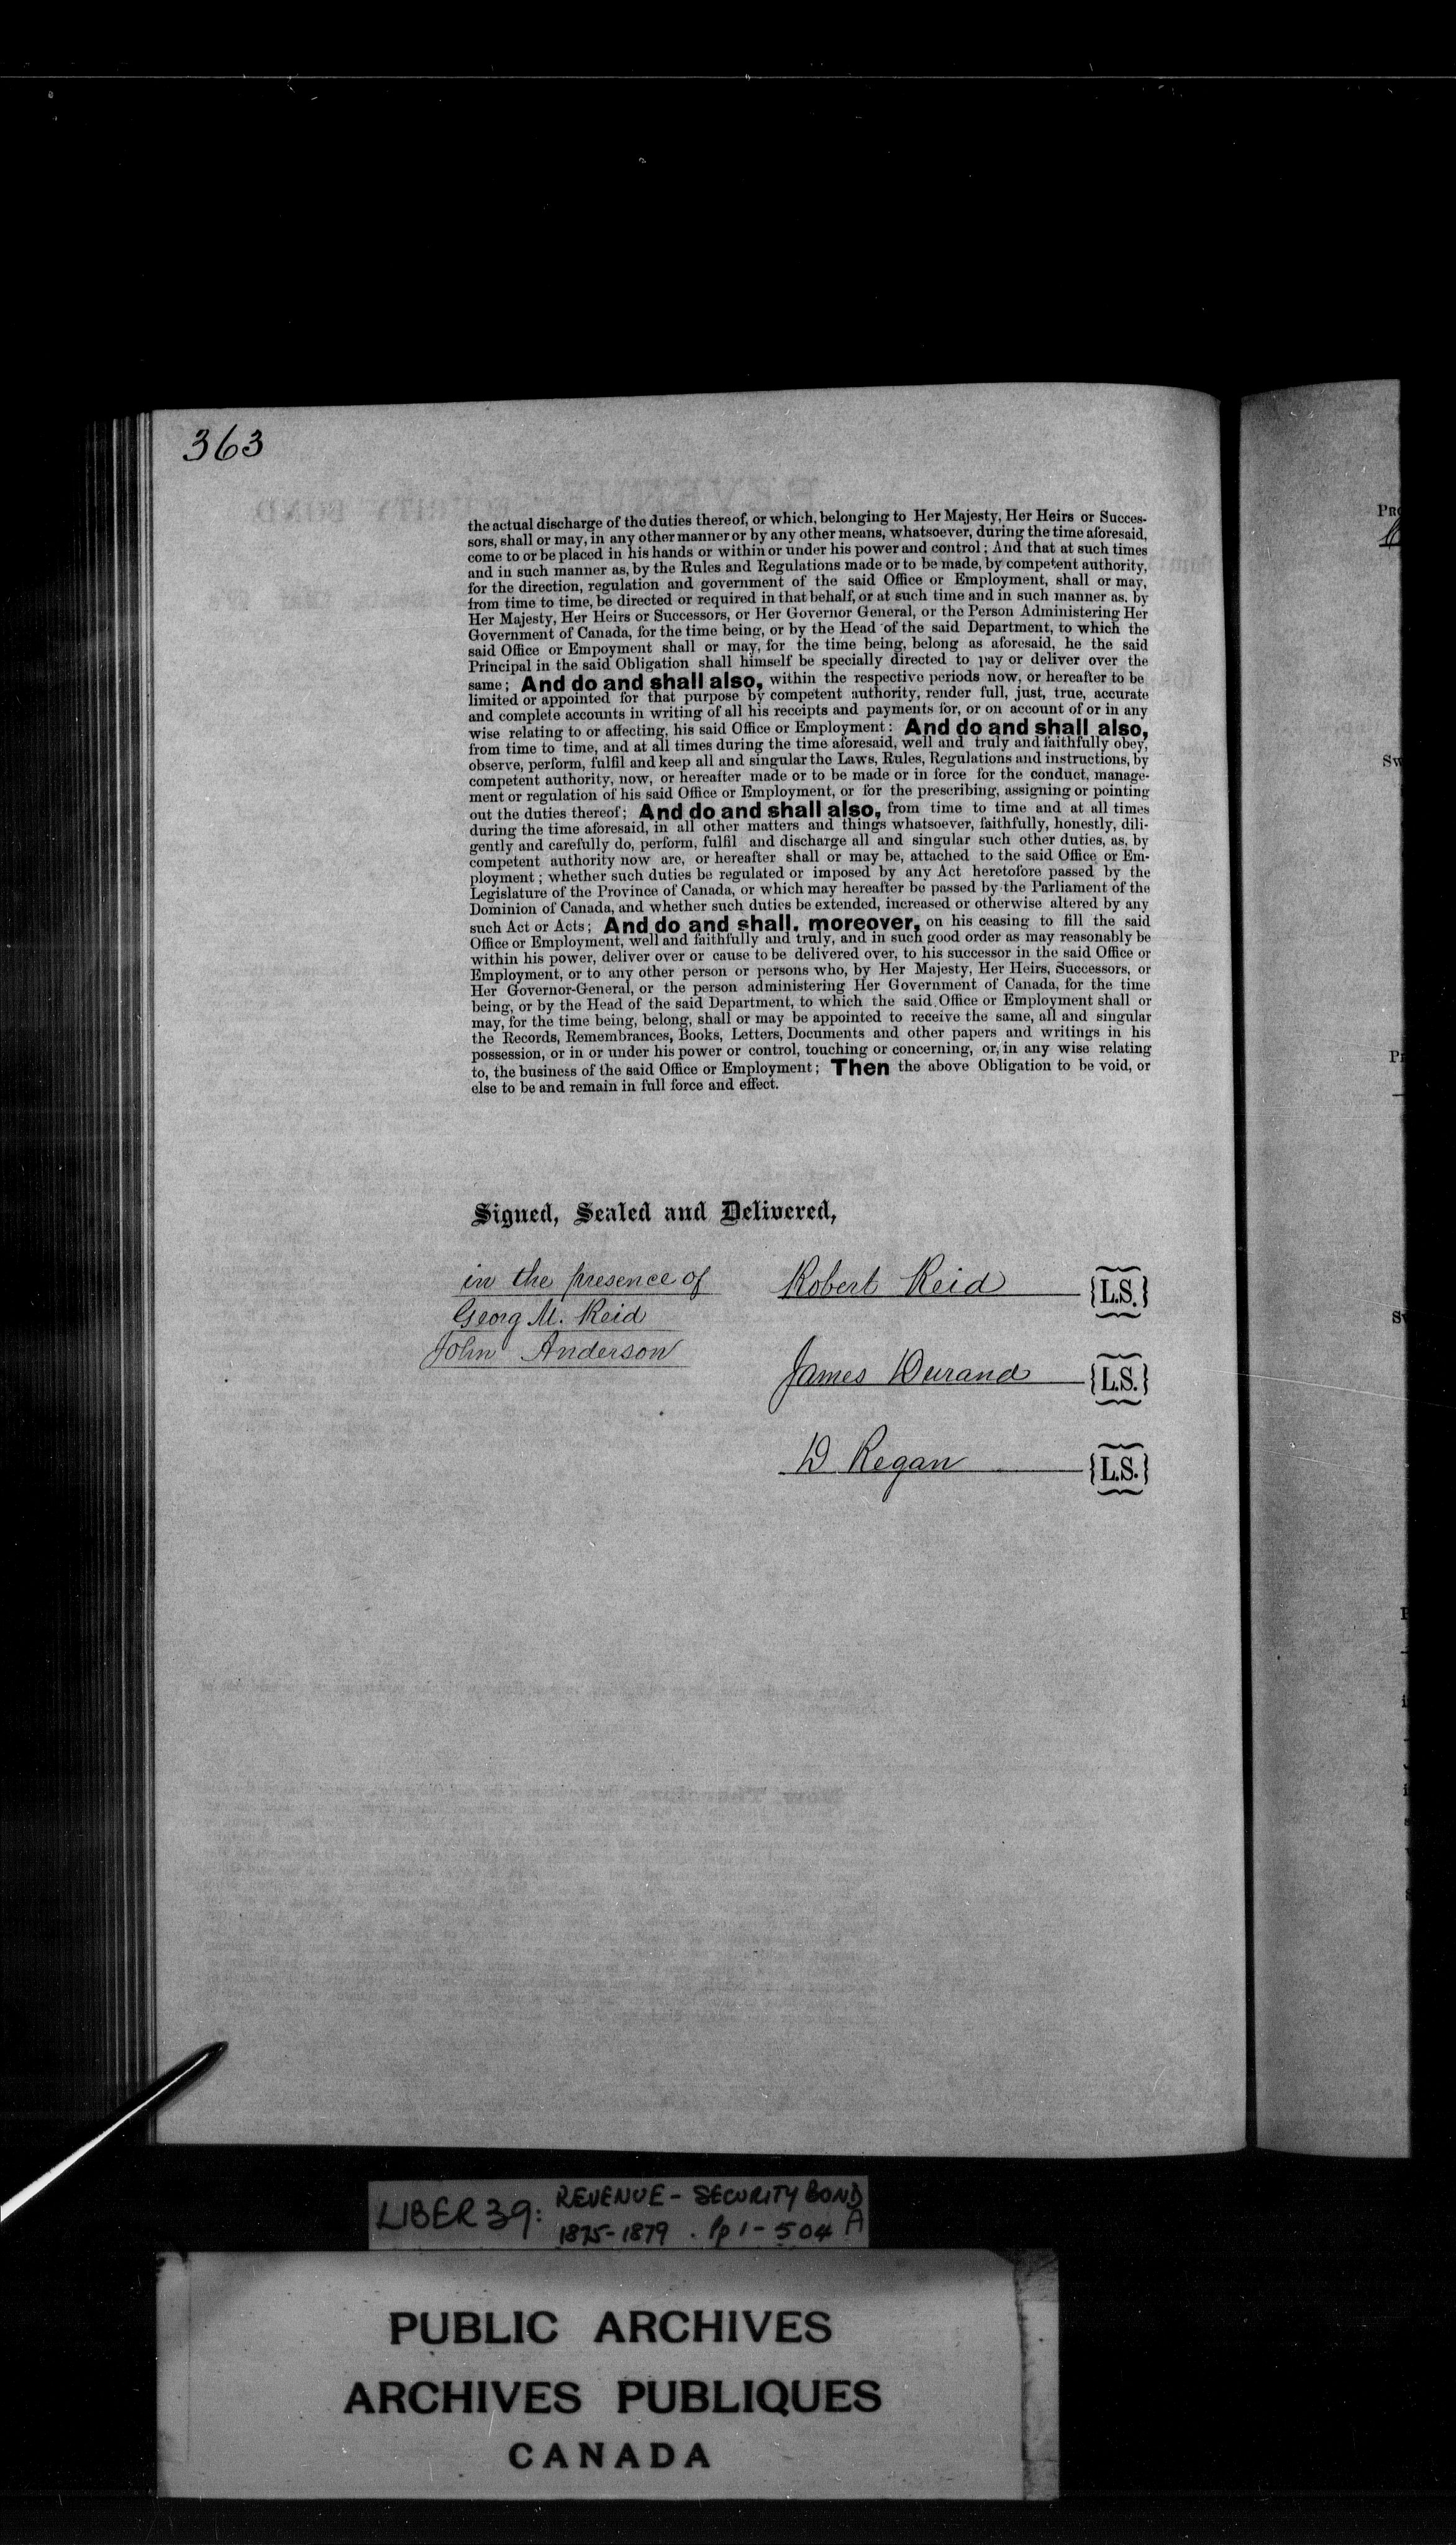 363
the actual discharge of the duties thereof, or which, belonging to Her Majesty, Her Heirs or Succes-
sors, shall or may, in any other manner or by any other means, whatsoever, during the time aforesaid,
come to or be placed in his hands or within or under his power and control; And that at such times
and in such manner as, by the Rules and Regulations made or to be made, by competent authority,
for the direction, regulation and government of the said Office or Employment, shall or may,
from time to time, be directed or required in that behalf, or at such time and in such manner as. by
Her Majesty, Her Heirs or Successors, or Her Governor General, or the Person Administering Her
Government of Canada, for the time being, or by the Head of the said Department, to which the
said Office or Empoyment shall or may, for the time being, belong as aforesaid, he the said
Principal in the said Obligation shall himself be specially directed to pay or deliver over the
same; And do and shall also, within the respective periods now, or hereafter to be
limited or appointed for that purpose by competent authority, render full, just, true, accurate
and complete accounts in writing of all his receipts and payments for, or on account of or in any
wise relating to or affecting, his said Office or Employment: And do and shall also,
from time to time, and at all times during the time aforesaid, well and truly and faithfully obey,
observe, perform, fulfil and keep all and singular the Laws, Rules, Regulations and instructions, by
competent authority, now, or hereafter made or to be made or in force for the conduct, manage-
ment or regulation of his said Office or Employment, or for the prescribing, assigning or pointing
out the duties thereof; And do and shall also, from time to time and at all times
during the time aforesaid, in all other matters and things whatsoever, faithfully, honestly, dili-
gently and carefully do, perform, fulfil and discharge all and singular such other duties, as, by
competent authority now are, or hereafter shall or may be, attached to the said Office or Em-
ployment; whether such duties be regulated or imposed by any Act heretofore passed by the
Legislature of the Province of Canada, or which may hereafter be passed by the Parliament of the
Dominion of Canada, and whether such duties be extended, increased or otherwise altered by any
such Act or Acts; And do and shall, moreover, on his ceasing to fill the said
Office or Employment, well and faithfully and truly, and in such good order as may reasonably be
within his power, deliver over or cause to be delivered over, to his successor in the said Office or
Employment, or to any other person or persons who, by Her Majesty, Her Heirs, Successors, or
Her Governor-General, or the person administering Her Government of Canada, for the time
being, or by the Head of the said Department, to which the said Office or Employment shall or
may, for the time being, belong, shall or may be appointed to receive the same, all and singular
the Records, Remembrances, Books, Letters, Documents and other papers and writings in his
possession, or in or under his power or control, touching or concerning, or, in any wise relating
to, the business of the said Office or Employment; Then the above Obligation to be void, or
else to be and remain in full force and effect.
Signed, Sealed and Delivered,
in the presence of
Georg M. Reid
John Anderson
Robert Reid {L.S.}
James Durand {L.S.}
D Regan {L.S.}
LIBER 39: REVENUE - SECURITY BOND
1875-1879 . Pp 1-504 A
PUBLIC ARCHIVES
ARCHIVES PUBLIQUES
CANADA